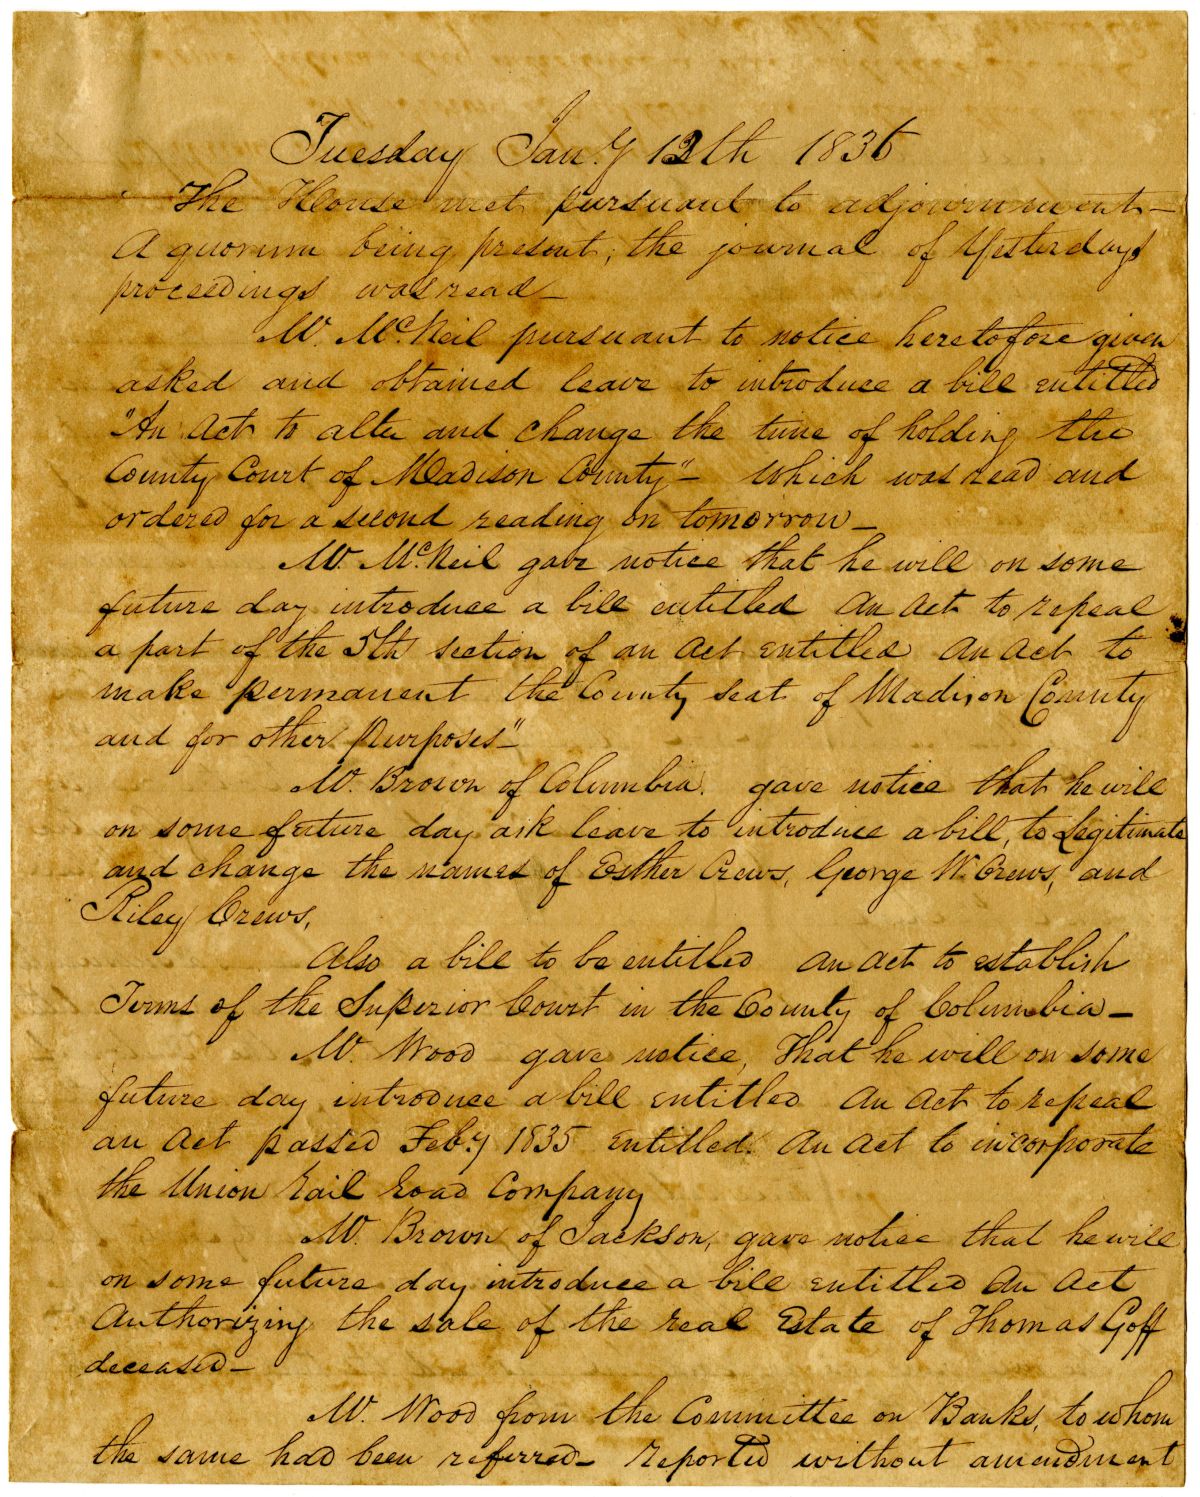 Tuesday Jan.y 12th 1836
The House met pursuant to adjournment—
A quorum being present, the journal of Yesterdays
proceedings was read—
Mr. McNeil pursuant to notice heretofore given
asked and obtained leave to introduce a bill entitled
"An Act to alter and change the time of holding the
County Court of Madison County"— which was read and
ordered for a second reading on tomorrow—
Mr. McNeil gave notice that he will on some
future day introduce a bill entitled An Act to repeal
a part of the 5th section of an Act entitled An Act to
make permanent the County seat of Madison County
and for other Purposes"—
Mr. Brown of Columbia. gave notice that he will
on some future day ask leave to introduce a bill, to Legitimate
and change the names of Esther Crews, George W. Crews, and
Riley Crews,
Also a bill to be entitled An Act to establish
Terms of the Superior Court in the County of Columbia—
Mr. Wood gave notice, That he will on some
future day introduce a bill entitled An Act to repeal
an Act passed Feb.y 1835 entitled. An Act to incorporate
the Union Rail Road Company
Mr. Brown of Jackson, gave notice that he will
on some future day introduce a bill entitled An Act
Authorizing the sale of the real Estate of Thomas Goff
deceased—
Mr. Wood from the Committee on Banks, to whom
the same had been referred— reported without amendment